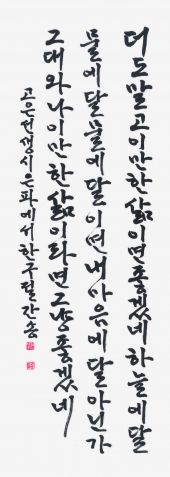 더도말고이만한삶이면좋겠네하늘에달
물에달물에달이면내마음에달아닌가
그대와나이만한삶이라면그냥좋겠네
고은선생시은파에서한구절간송